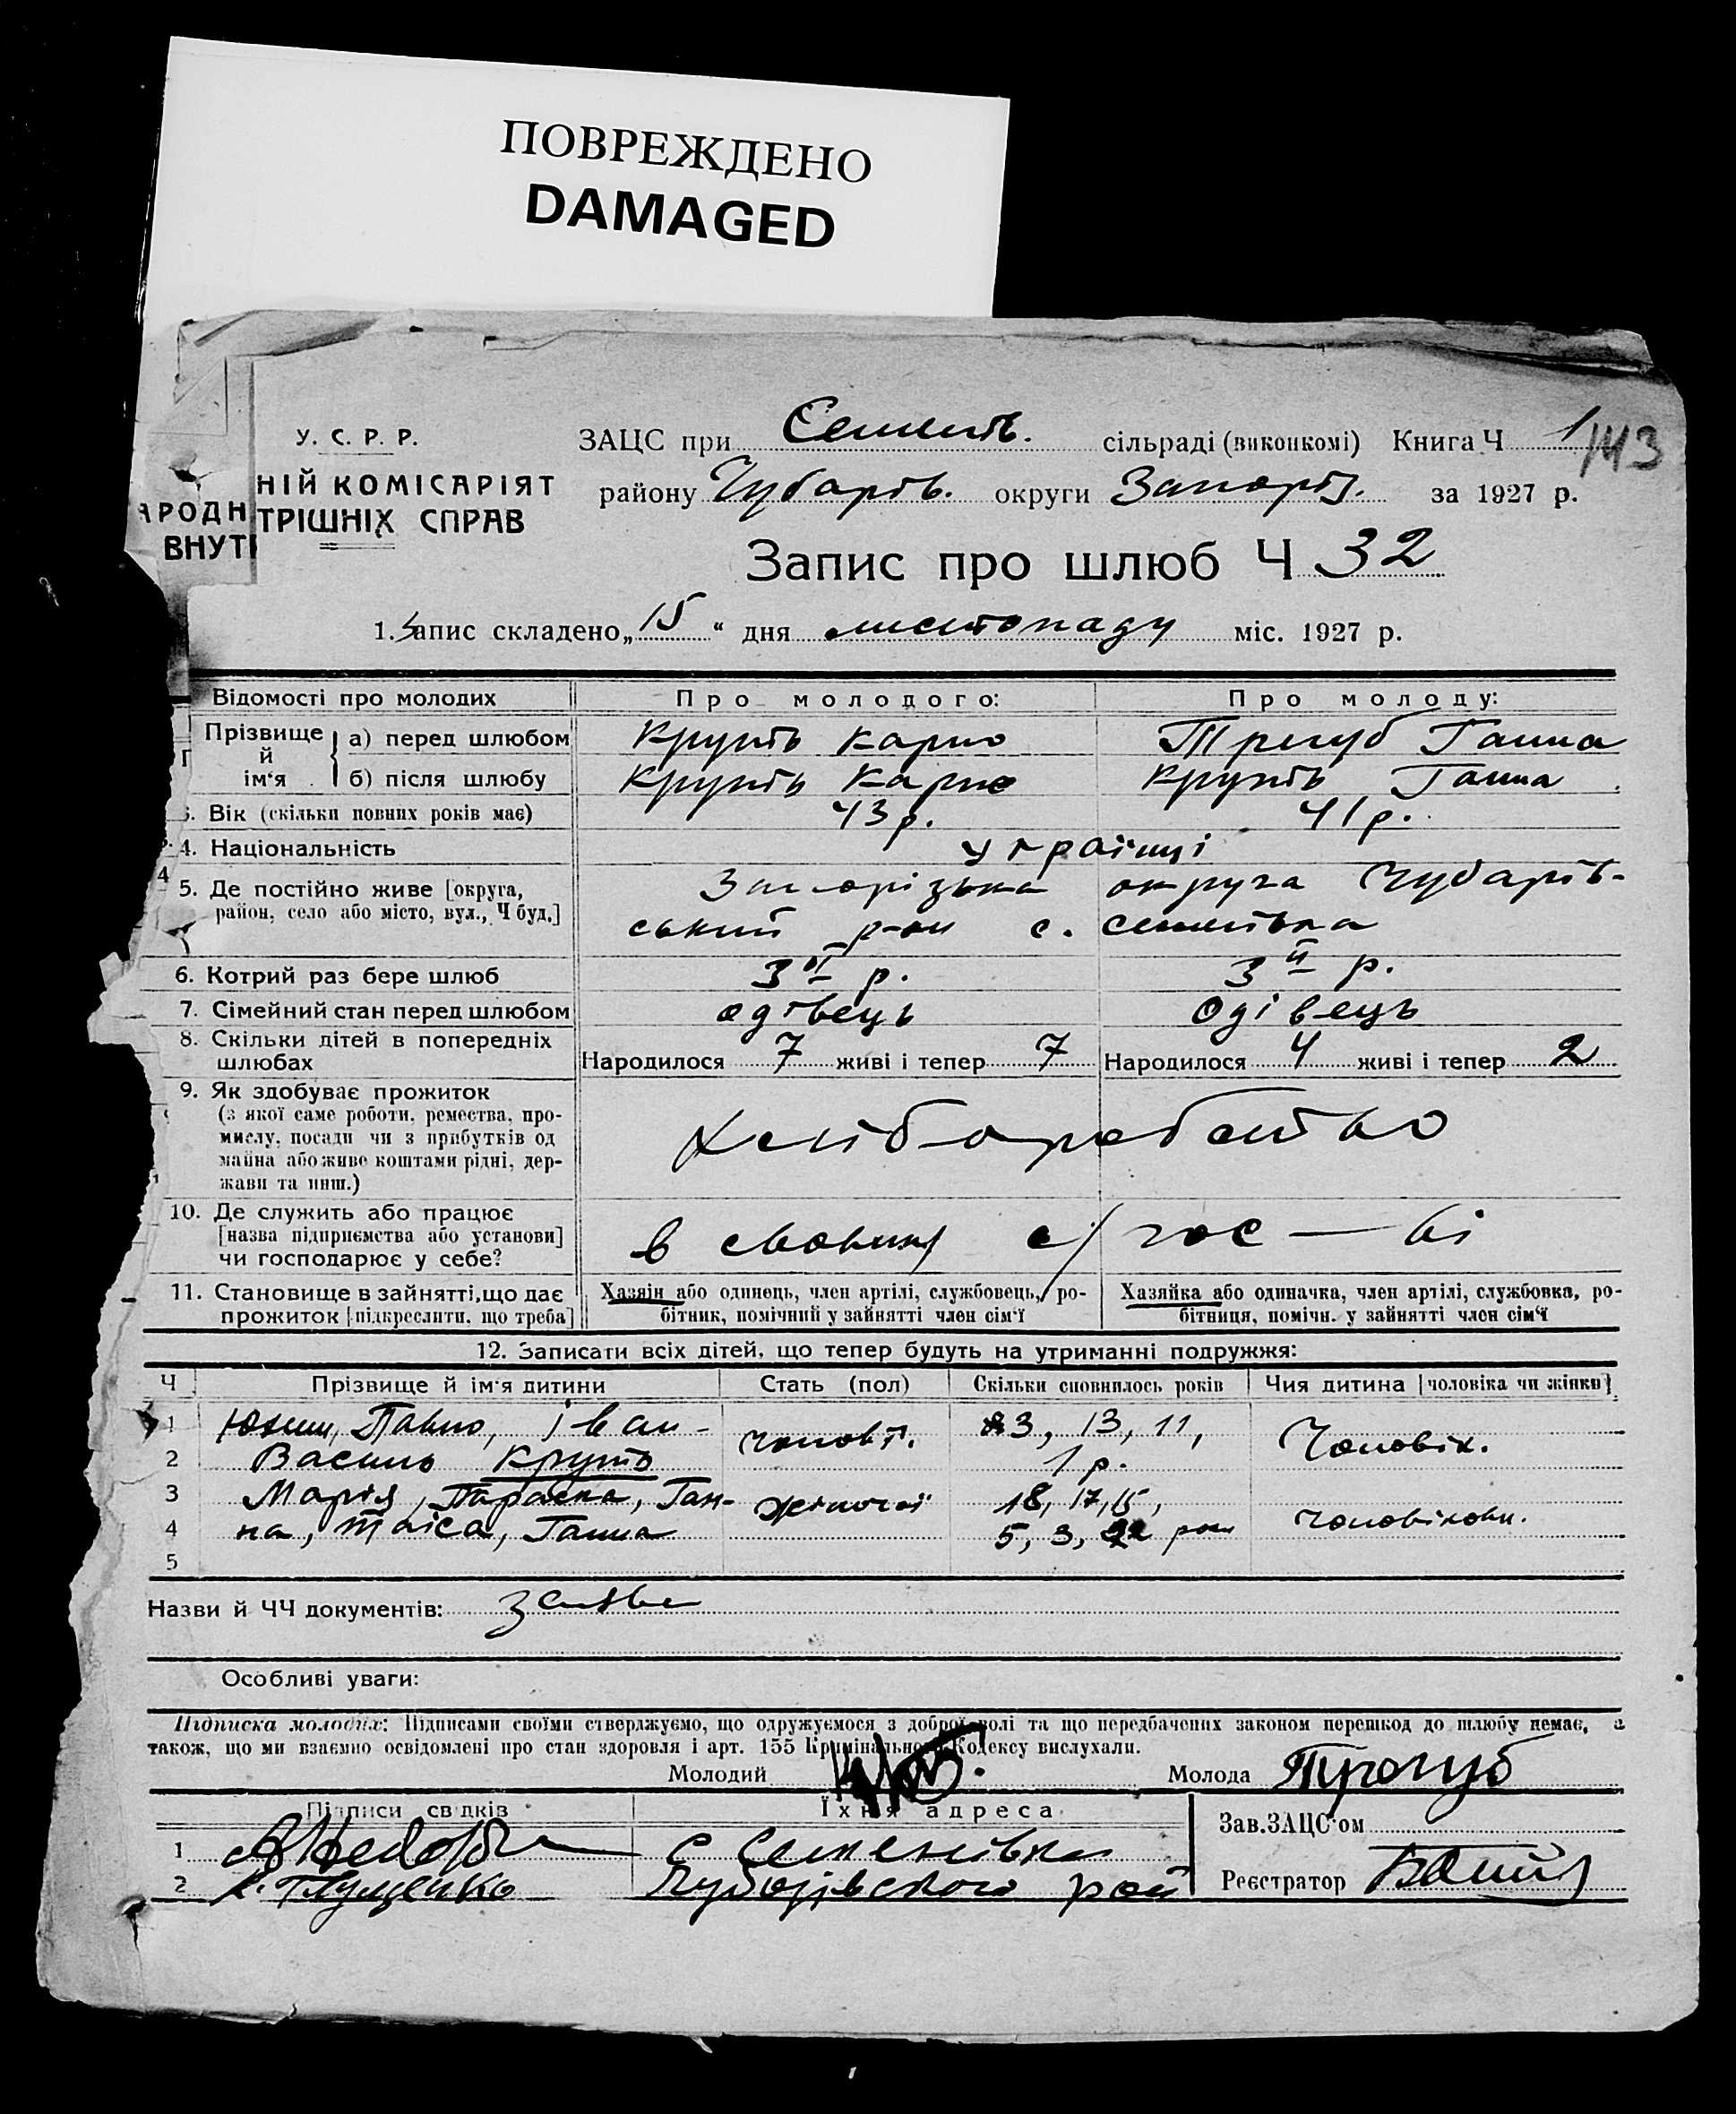 ПОВРЕЖДЕНО
DAMAGED
У. С. Р. Р.
НІЙ КОМІСАРІЯТ
АРОДН
ТРІШНІХ СПРАВ
ВНУТІ
ЗАЦС при Семенів. сільраді (виконкомі) Книга Ч 1
143
району Чубарів. округи Запоріз. за 1927 р.
Запис про шлюб Ч 32
1. Запис складено „15“ дня листопаду міс. 1927 р.
Відомості про молодих Про молодого: Про молоду:
Прізвище й ім‘я а) перед шлюбом Круть Карпо Трегуб Ганна
б) після шлюбу Круть Карпо Круть Ганна
3. Вік (скільки повних років має) 43 р. 41 р.
4. Національність українці
5. Де постійно живе [округа, Запорізька округа Чубарів-
район, село або місто, вул., Ч буд.] ський р-он с. Семенівка
6. Котрий раз бере шлюб 3й р. 3й р.
7. Сімейний стан перед шлюбом одівець одівець
8. Скільки дітей в попередніх
шлюбах Народилося 7 живі і тепер 7 Народилося 4 живі і тепер 2
9. Як здобуває прожиток
(з якої саме роботи, ремества, про-
мислу, посади чи з прибутків од
майна або живе коштами рідні, дер-
жави та инш.)
хліборобство
10. Де служить або працює
[назва підприємства або установи]
чи господарює у себе?
в своьому с/гос—ві
11. Становище в зайнятті, що дає Хазяін або одинець, член артілі, службовець, ро- Хазяйка або одиначка, член артілі, службовка, ро-
прожиток [підкреслити, що треба] бітник, помічний у зайнятті член сім‘ї бітниця, помічн. у зайнятті член сім‘ї
12. Записати всіх дітей, що тепер будуть на утриманні подружжя:
Ч Прізвище й ім‘я дитини Стать (пол) Скільки сповнилось років Чия дитина [чоловіка чи жінки]
1 Юхим, Павло, Іван- чоловіч. 3, 13, 11, Чоловік.
2 Василь Круть 1 р.
3 Марія, Параска, Ган- жіночої 18, 17, 15, чоловікови.
4 на, Таіса, Ганна 5, 3, рок
5
Назви й ЧЧ документів: заяви
Особливі уваги:
Підписка молодих: Підписами своїми стверджуємо, що одружуємося з доброї волі та що передбачених законом перешкод до шлюбу немає, а
також, що ми взаємно освідомлені про стан здоровля і арт. 155 Кримінального Кодексу вислухали.
Молодий Молода Трегуб
Підписи свідків Їхня адреса
Зав. ЗАЦС‘ом
1 с Семенівка
2 Глущенко Чубарівського рай
Реєстратор